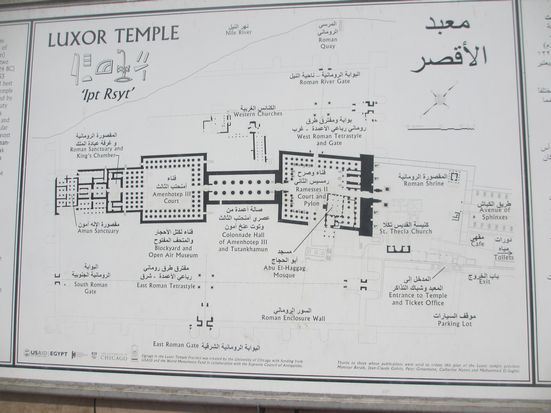 LUXOR TEMPLE
'Ipt Rsyt'
معبد
الأقصر
نهر النيل
Nile River
المرسى
الروماني
Roman
Quay
البوابة الرومانية - ناحية النيل
Roman River Gate
الكنائس الغربية
Western Churches
بوابة ومفترق طرق
روماني رباعي الأعمدة - غرب
West Roman Tetrastyle
and Gate
المقصورة الرومانية
و غرفة عبادة الملك
Roman Sanctuary and
King's Chamber
فناء
أمنحتب الثالث
Amenhotep III
Court
فناء وصرح
رمسيس الثاني
Ramesses II
Court and
Pylon
المقصورة الرومانية
Roman Shrine
طريق الكباش
Avenue of
Sphinxes
مقصورة الإله آمون
Amun Sanctuary
فناء لكتل الأحجار
والمتحف المفتوح
Blockyard and
Open Air Museum
صالة أعمدة من
عصري أمنحتب الثالث
وتوت عنخ آمون
Colonnade Hall
of Amenhotep III
and Tutankhamun
مسجد
أبو الحجاج
Abu El-Haggag
Mosque
كنيسة القديس تكلا
St. Thecla Church
مقهى
Cafe
دورات
مياه
Toilets
البوابة
الرومانية الجنوبية
South Roman
Gate
مفترق طرق روماني
رباعي الأعمدة - شرق
East Roman Tetrastyle
المدخل إلى
المعبد وشباك التذاكر
Entrance to Temple
and Ticket Office
باب الخروج
Exit
السور الروماني
Roman Enclosure Wall
موقف السيارات
Parking Lot
East Roman Gate البوابة الرومانية الشرقية
USAID EGYPT
CHICAGO
Signage in the Luxor Temple Precinct was created by the University of Chicago with funding from
USAID and the World Monuments Fund in collaboration with the Supreme Council of Antiquities.